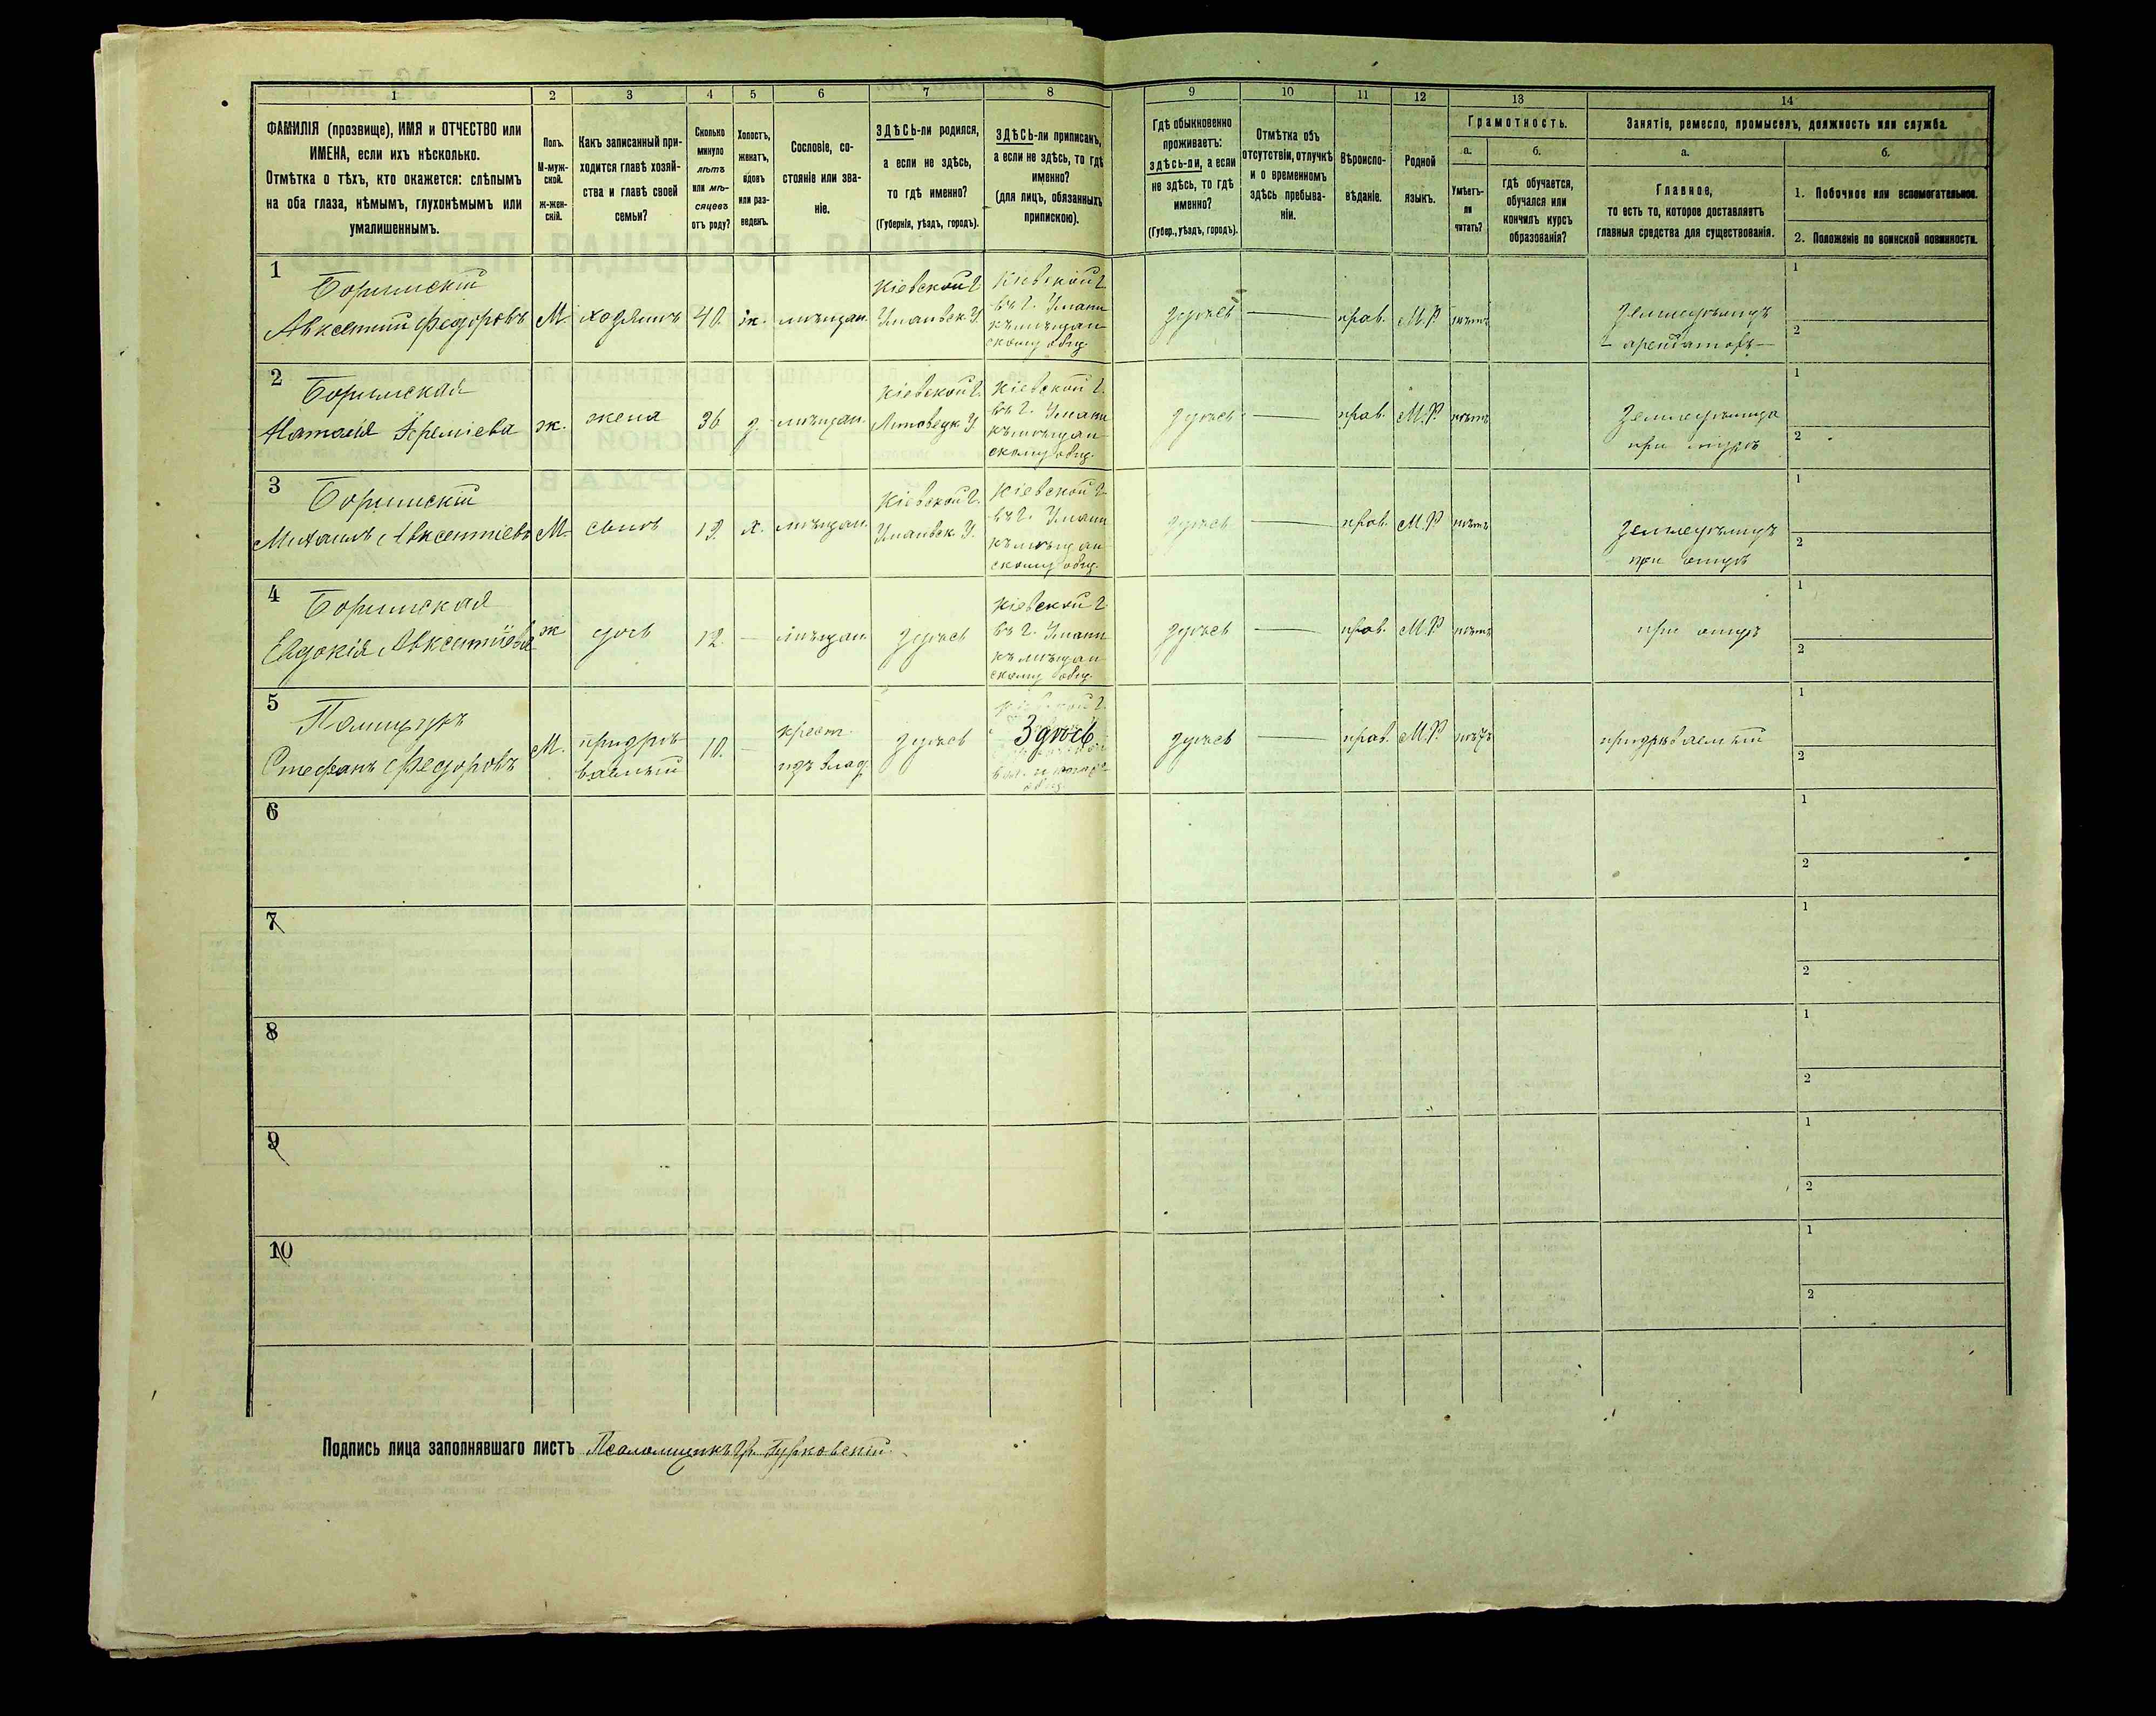 1 2 3 4 5 6 7 8 9 10 11 12 13 14
ФАМИЛІЯ (прозвище), ИМЯ и ОТЧЕСТВО или
ИМЕНА, если ихъ нѣсколько.
Отмѣтка о тѣхъ, кто окажется: слѣпымъ
на оба глаза, нѣмымъ, глухонѣмымъ или
умалишеннымъ.
Полъ.
М-муж-
ской.
ж-жен-
скій.
Какъ записанный при-
ходится главѣ хозяй-
ства и главѣ своей
семьи?
Сколько
минуло
лѣтъ
или мѣ-
сяцевъ
отъ роду?
Холостъ,
женатъ,
вдовъ
или раз-
веденъ.
Сословіе, со-
стояніе или зва-
ніе.
ЗДѢСЬ-ли родился,
а если не здѣсь,
то гдѣ именно?
(Губернія, уѣздъ, городъ).
ЗДѢСЬ-ли приписанъ,
а если не здѣсь, то гдѣ
именно?
(для лицъ, обязанныхъ
припискою).
Гдѣ обыкновенно
проживаетъ:
здѣсь-ли, а если
не здѣсь, то гдѣ
именно?
(Губер., уѣздъ, городъ).
Отмѣтка объ
отсутствіи, отлучкѣ
и о временномъ
здѣсь пребыва-
ніи.
Вѣроиспо-
вѣданіе.
Родной
языкъ.
Грамотность.
а.
Умѣетъ-
ли
читать?
б.
гдѣ обучается,
обучался или
кончилъ курсъ
образованія?
Занятіе, ремесло, промыселъ, должность или служба.
а.
Главное,
то есть то, которое доставляетъ
главныя средства для существованія.
б.
1. Побочное или вспомогательное.
2. Положеніе по воинской повинности.
1
Авксентій Федоровъ
М.
хозяинъ
40.
ж.
мѣщан.
Кіевской г.
Уманьск. У.
Кіевской г.
въ г. Умани
къ мѣщан-
скому общ.
здѣсь
прав.
М.Р.
нѣтъ
Земледѣлецъ
арендаторъ
1
2
2
ж.
жена
36
з.
мѣщан.
Кіевской г.
Липовецк. У.
Кіевской г.
въ г. Умани
къ мѣщан-
скому общ.
здѣсь
прав.
М.Р.
нѣтъ
при мужѣ
1
2
3
Михаилъ Авксентіевъ
М.
сынъ
х.
мѣщан.
Кіевской г.
Уманьск. У.
Кіевской г.
въ г. Умани
къ мѣщан-
скому общ.
здѣсь
прав.
М.Р.
нѣтъ
Земледѣлецъ
при отцѣ
1
2
4
Евдокія Авксентіева
ж
дочь
12.
мѣщан.
здѣсь
Кіевской г.
въ г. Умани
къ мѣщан-
скому общ.
здѣсь
прав.
М.Р.
нѣтъ
при отцѣ
1
2
5
Стефанъ Федоровъ
М.
10.
крест.
изъ влад.
здѣсь
Здѣсь
здѣсь
прав.
М.Р.
нѣтъ
1
2
6
1
2
7
1
2
8
1
2
9
1
2
10
1
2
Подпись лица заполнявшаго листъ Псаломщикъ